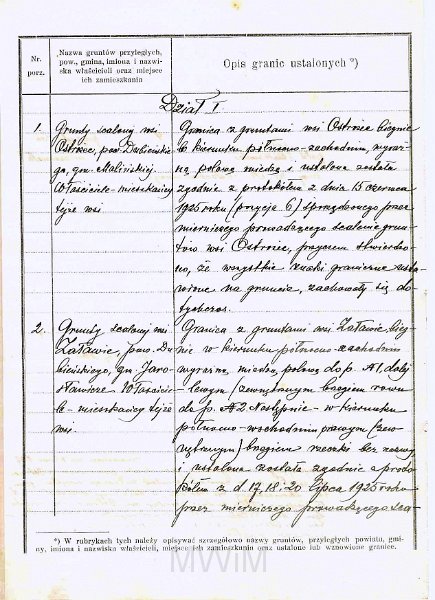 Nr. porz.
Nazwa gruntów przyległych,
pow., gmina, imiona i nazwi-
ska właścicieli oraz miejsce
ich zamieszkania
Opis granic ustalonych *)
Dział I
1.
Grunty scalony wsi
Ostrzec, pow. Dubieńskie-
go, gm. Malińskiej.
Właściciele-mieszkańcy
tejże wsi
Granica z gruntami wsi Ostrzec biegnie
w kierunku północno-zachodnim, wyraź-
ną polową miedzą i ustalona została
zgodnie z protokółem z dnia 15 czerwca
1925 roku (pozycja 6) sporządzonego przez
mierniczego prowadzącego scalenie grun-
tów wsi Ostrzec, przyczem stwierdzo-
no, że wszystkie znaki graniczne usta-
wione na gruncie, zachowały się do-
tychczas.
2.
Grunty scalony wsi
Załawie, pow. Du-
bieńskiego, gm. Jaro-
sławicze Właściciele
-mieszkańcy tejże
wsi.
Granica z gruntami wsi Załawie bieg-
nie w kierunku północno-zachodnim
wyraźną miedzą polową do p. A1, dalej
lewym (zewnętrznym) brzegiem rowu
do p. A2. Następnie - w kierunku
północno-wschodnim prawym (zew-
nętrznym) brzegiem rzeczki bez nazwy
i ustalona została zgodnie z proto-
kółem z d. 17, 18 i 20 lipca 1925 roku
przez mierniczego prowadzącego sca-
*) W rubrykach tych należy opisywać szczegółowo nazwy gruntów, przyległych powiatu, gmi-
ny, imiona i nazwiska właścicieli, miejsce ich zamieszkania oraz ustalone lub wznowione granice.
MWIM